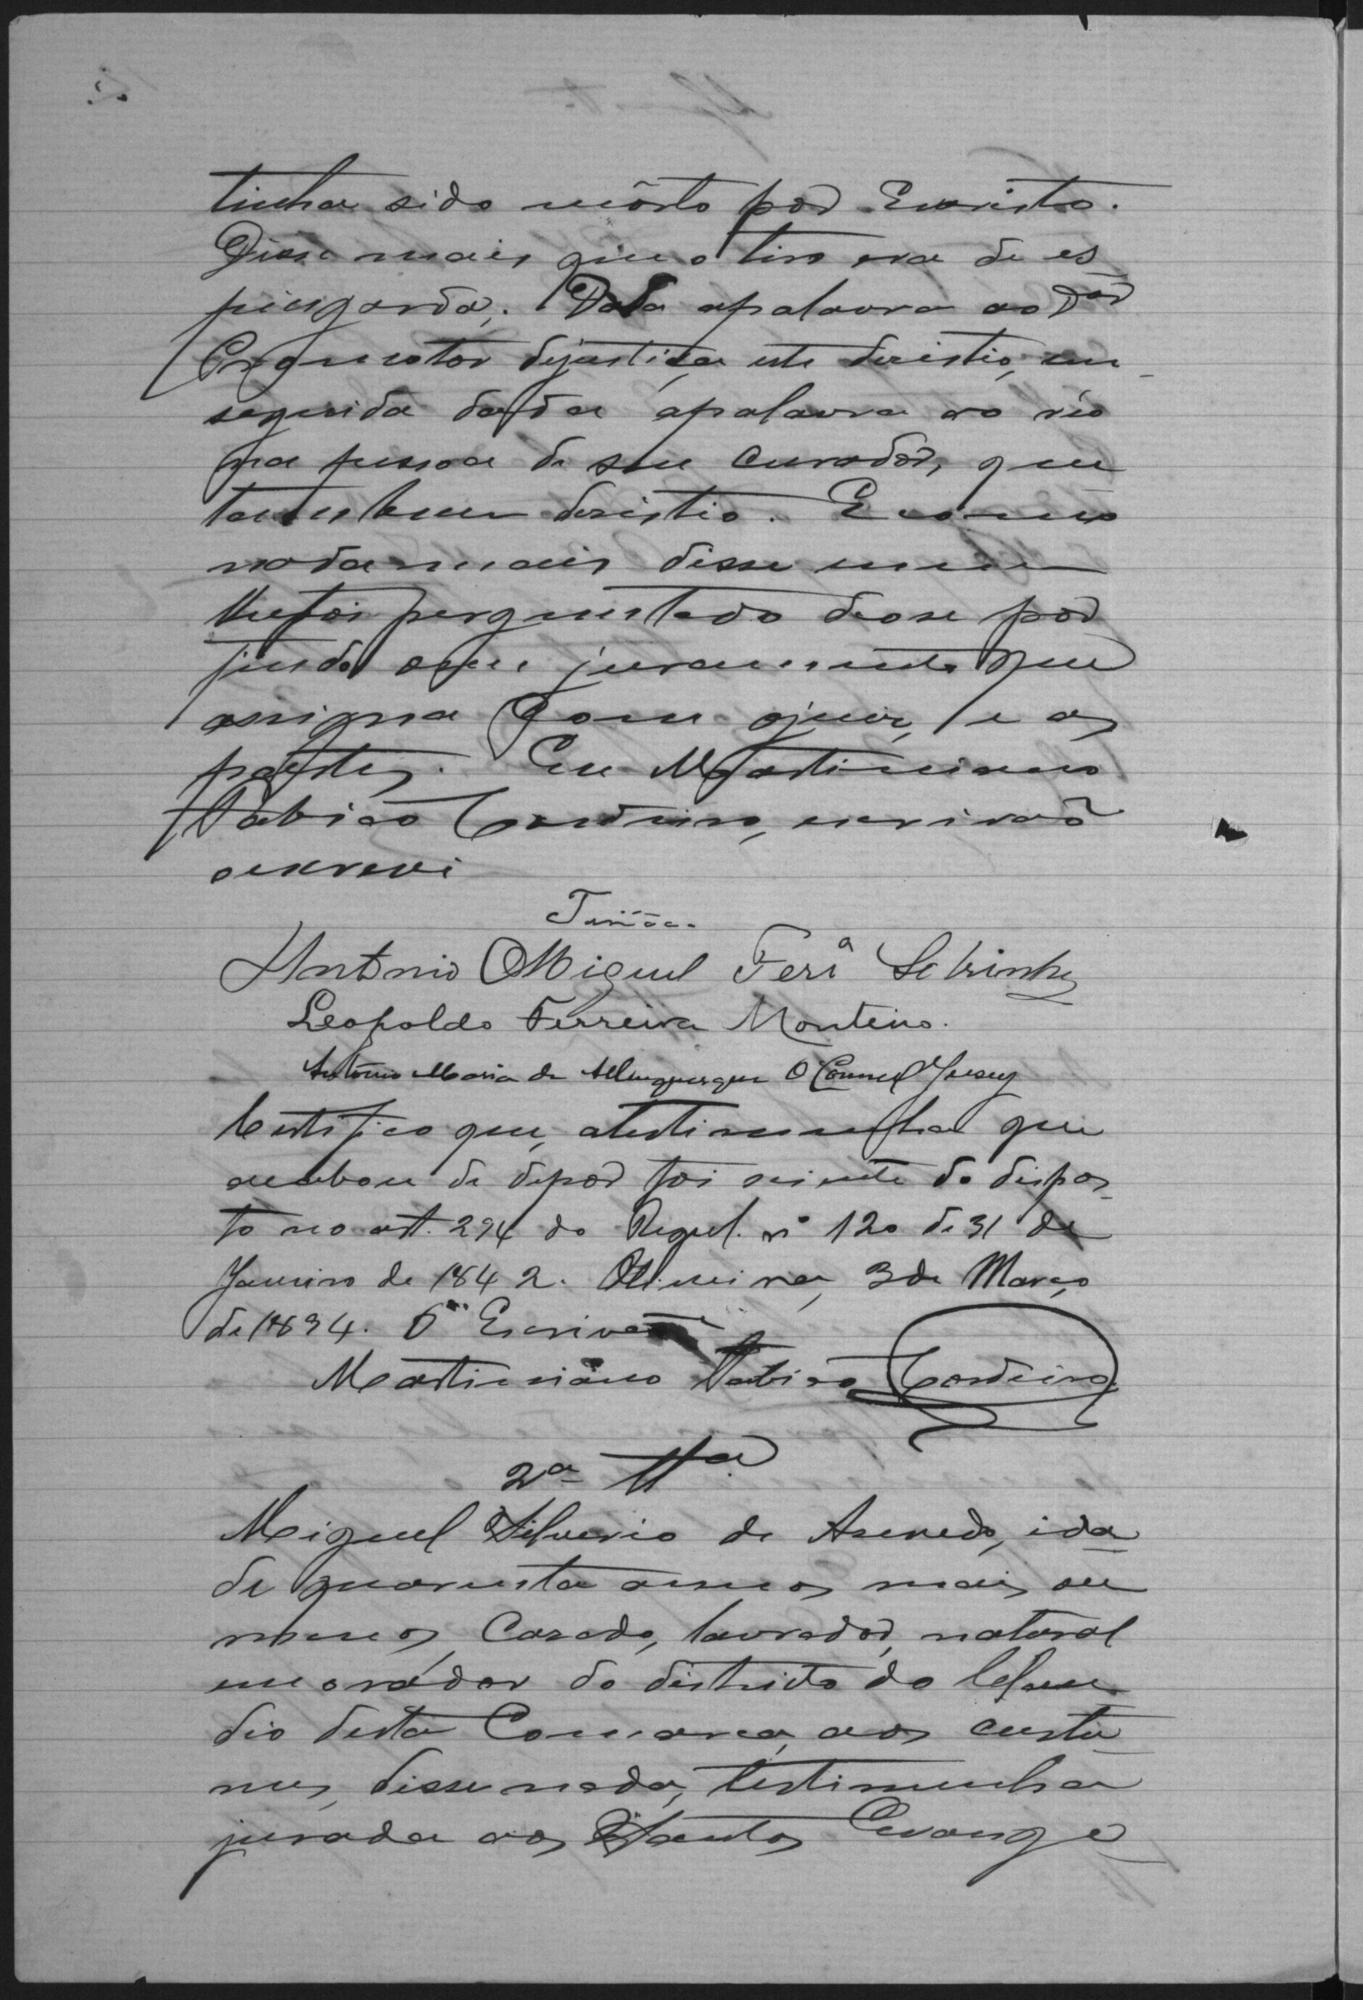 tinha sido môrto por Evaristo.
Disse mais que o tiro era de es
pingarda. Dada apalavra ao Dor
Promotor dejustiça este desistio, em
seguida dada apalavra ao réo
na pessoa de seu curador, que
tambem desistio. E como
nada mais disse nem
lhe foi perguntado deose por
findo o seu juramento que
assigna com ojuiz, e as
partes. Eu Martiniano
Fabião Cordeiro, escrivaõ
oescrevi
Antonio Miguel Ferª Sobrinho
Leopoldo Ferreira Monteiro.
Antonio Maria de Albuquerque O'Connel Jersey
Certifico que, atestimunha que
acabou de depor foi sciente do dispos
to no art. 294 do Regul. nº 120 de 31 de
Janeiro de 1842. Olimeira, 3 de Março
de 1894. O Escrivaõ
Martiniano Fabião Cordeiro
2ª Ttª
Miguel Silverio de Asevedo, ida
de quarenta annos mais ou
menos, Casado, lavrador, natural
e morador do districto do
dio desta Comarca, aos custu
mes, disse nada, testimunha
jurada aos Santos Evange